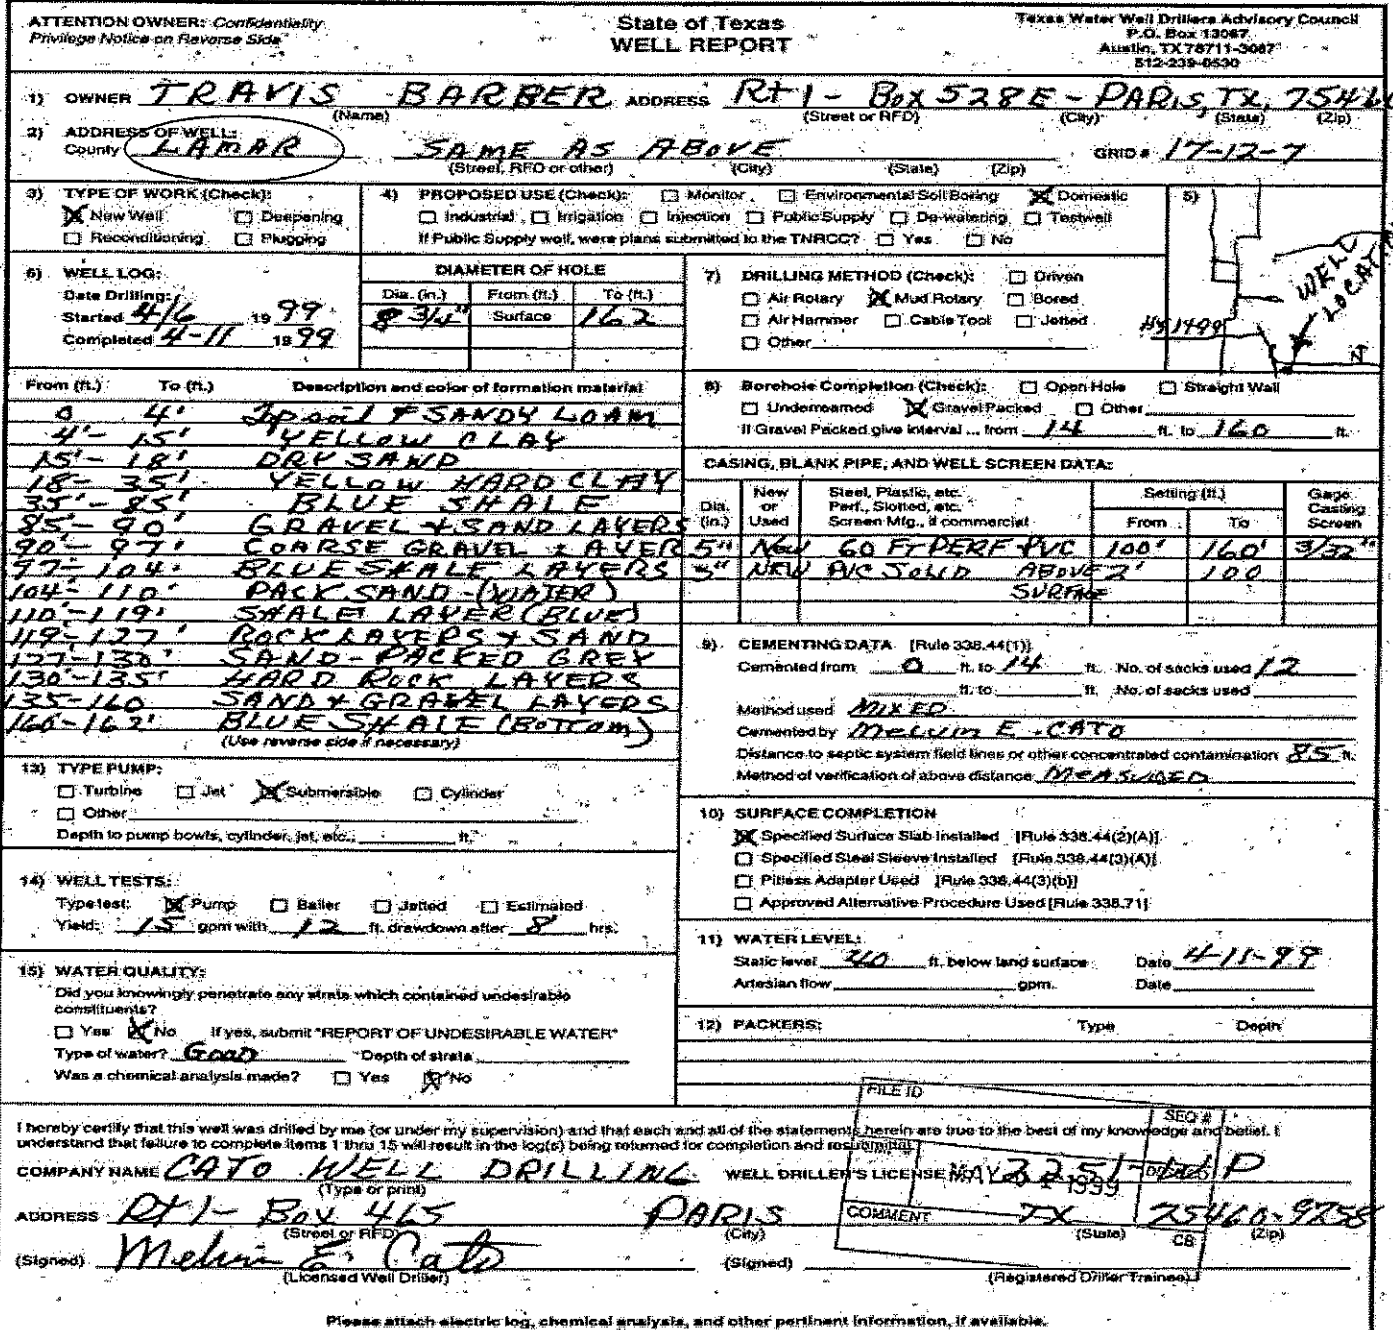 ATTENTION OWNER: Confidentiality
Privilege Notice on Reverse Side
State of Texas
WELL REPORT
Texas Water Well Drillers Advisory Council
P.O. Box 13087
Austin, TX 78711-3087
512-239-0530
1) OWNER TRAVIS BARBER ADDRESS Rt 1 - Box 528E - PARIS, TX, 75460
(Name) (Street or RFD) (City) (State) (Zip)
2) ADDRESS OF WELL:
County LAMAR SAME AS ABOVE GRID # 17-12-7
(Street, RFD or other) (City) (State) (Zip)
3) TYPE OF WORK (Check):
☒ New Well ☐ Deepening
☐ Reconditioning ☐ Plugging
4) PROPOSED USE (Check): ☐ Monitor ☐ Environmental Soil Boring ☒ Domestic
☐ Industrial ☐ Irrigation ☐ Injection ☐ Public Supply ☐ De-watering ☐ Testwell
If Public Supply well, were plans submitted to the TNRCC? ☐ Yes ☐ No
5)
WELL
LOCATION
Hy 1499
N
6) WELL LOG:
Date Drilling:
Started 4/6 19 99
Completed 4-11 19 99
DIAMETER OF HOLE
Dia. (in.) From (ft.) To (ft.)
8 3/4" Surface 162
7) DRILLING METHOD (Check): ☐ Driven
☐ Air Rotary ☒ Mud Rotary ☐ Bored
☐ Air Hammer ☐ Cable Tool ☐ Jetted
☐ Other
From (ft.) To (ft.) Description and color of formation material
0 4' Topsoil & SANDY LOAM
4'- 15' YELLOW CLAY
15'- 18' DRY SAND
18- 35' YELLOW HARD CLAY
35'- 85' BLUE SHALE
85'- 90' GRAVEL & SAND LAYERS
90'- 97' COARSE GRAVEL LAYER
97'-104' BLUE SHALE LAYERS
104'-110' PACK SAND-(WATER)
110'-119' SHALE LAYER (BLUE)
119-127' ROCK LAYERS & SAND
127-130' SAND-PACKED GREY
130'-135' HARD ROCK LAYERS
135-160 SAND & GRAVEL LAYERS
160-162' BLUE SHALE (BOTTOM)
(Use reverse side if necessary)
8) Borehole Completion (Check): ☐ Open Hole ☐ Straight Wall
☐ Underreamed ☒ Gravel Packed ☐ Other
If Gravel Packed give interval ... from 14 ft. to 160 ft.
CASING, BLANK PIPE, AND WELL SCREEN DATA:
Dia. (in.) New or Used Steel, Plastic, etc. Perf., Slotted, etc. Screen Mfg., if commercial Setting (ft.) From To Gage Casing Screen
5" NEW 60 FT PERF PVC 100' 160' 3/32"
5" NEW PVC SOLID ABOVE 2' 100
SURFACE
9) CEMENTING DATA [Rule 338.44(1)]
Cemented from 0 ft. to 14 ft. No. of sacks used 12
ft. to ft. No. of sacks used
Method used MIXED
Cemented by Melvin E. CATO
Distance to septic system field lines or other concentrated contamination 85 ft.
Method of verification of above distance MEASURED
13) TYPE PUMP:
☐ Turbine ☐ Jet ☒ Submersible ☐ Cylinder
☐ Other
Depth to pump bowls, cylinder, jet, etc., ft.
10) SURFACE COMPLETION
☒ Specified Surface Slab Installed [Rule 338.44(2)(A)]
☐ Specified Steel Sleeve Installed [Rule 338.44(3)(A)]
☐ Pitless Adapter Used [Rule 338.44(3)(b)]
☐ Approved Alternative Procedure Used [Rule 338.71]
14) WELL TESTS:
Type test: ☒ Pump ☐ Bailer ☐ Jetted ☐ Estimated
Yield: 15 gpm with 12 ft. drawdown after 8 hrs.
11) WATER LEVEL:
Static level 40 ft. below land surface Date 4-11-99
Artesian flow gpm. Date
15) WATER QUALITY:
Did you knowingly penetrate any strata which contained undesirable
constituents?
☐ Yes ☒ No If yes, submit "REPORT OF UNDESIRABLE WATER"
Type of water? GOOD Depth of strata
Was a chemical analysis made? ☐ Yes ☒ No
12) PACKERS: Type Depth
FILE ID
SEQ #
I hereby certify that this well was drilled by me (or under my supervision) and that each and all of the statements herein are true to the best of my knowledge and belief. I
understand that failure to complete items 1 thru 15 will result in the log(s) being returned for completion and resubmittal.
COMPANY NAME CATO WELL DRILLING WELL DRILLER'S LICENSE NO. P
(Type or print)
MAY 1999
ADDRESS Rt 1 - Box 465 PARIS TX 75460-9258
(Street or RFD) (City) (State) (Zip)
COMMENT
CB
(Signed) Melvin E. Cato (Signed)
(Licensed Well Driller) (Registered Driller Trainee)
Please attach electric log, chemical analysis, and other pertinent information, if available.